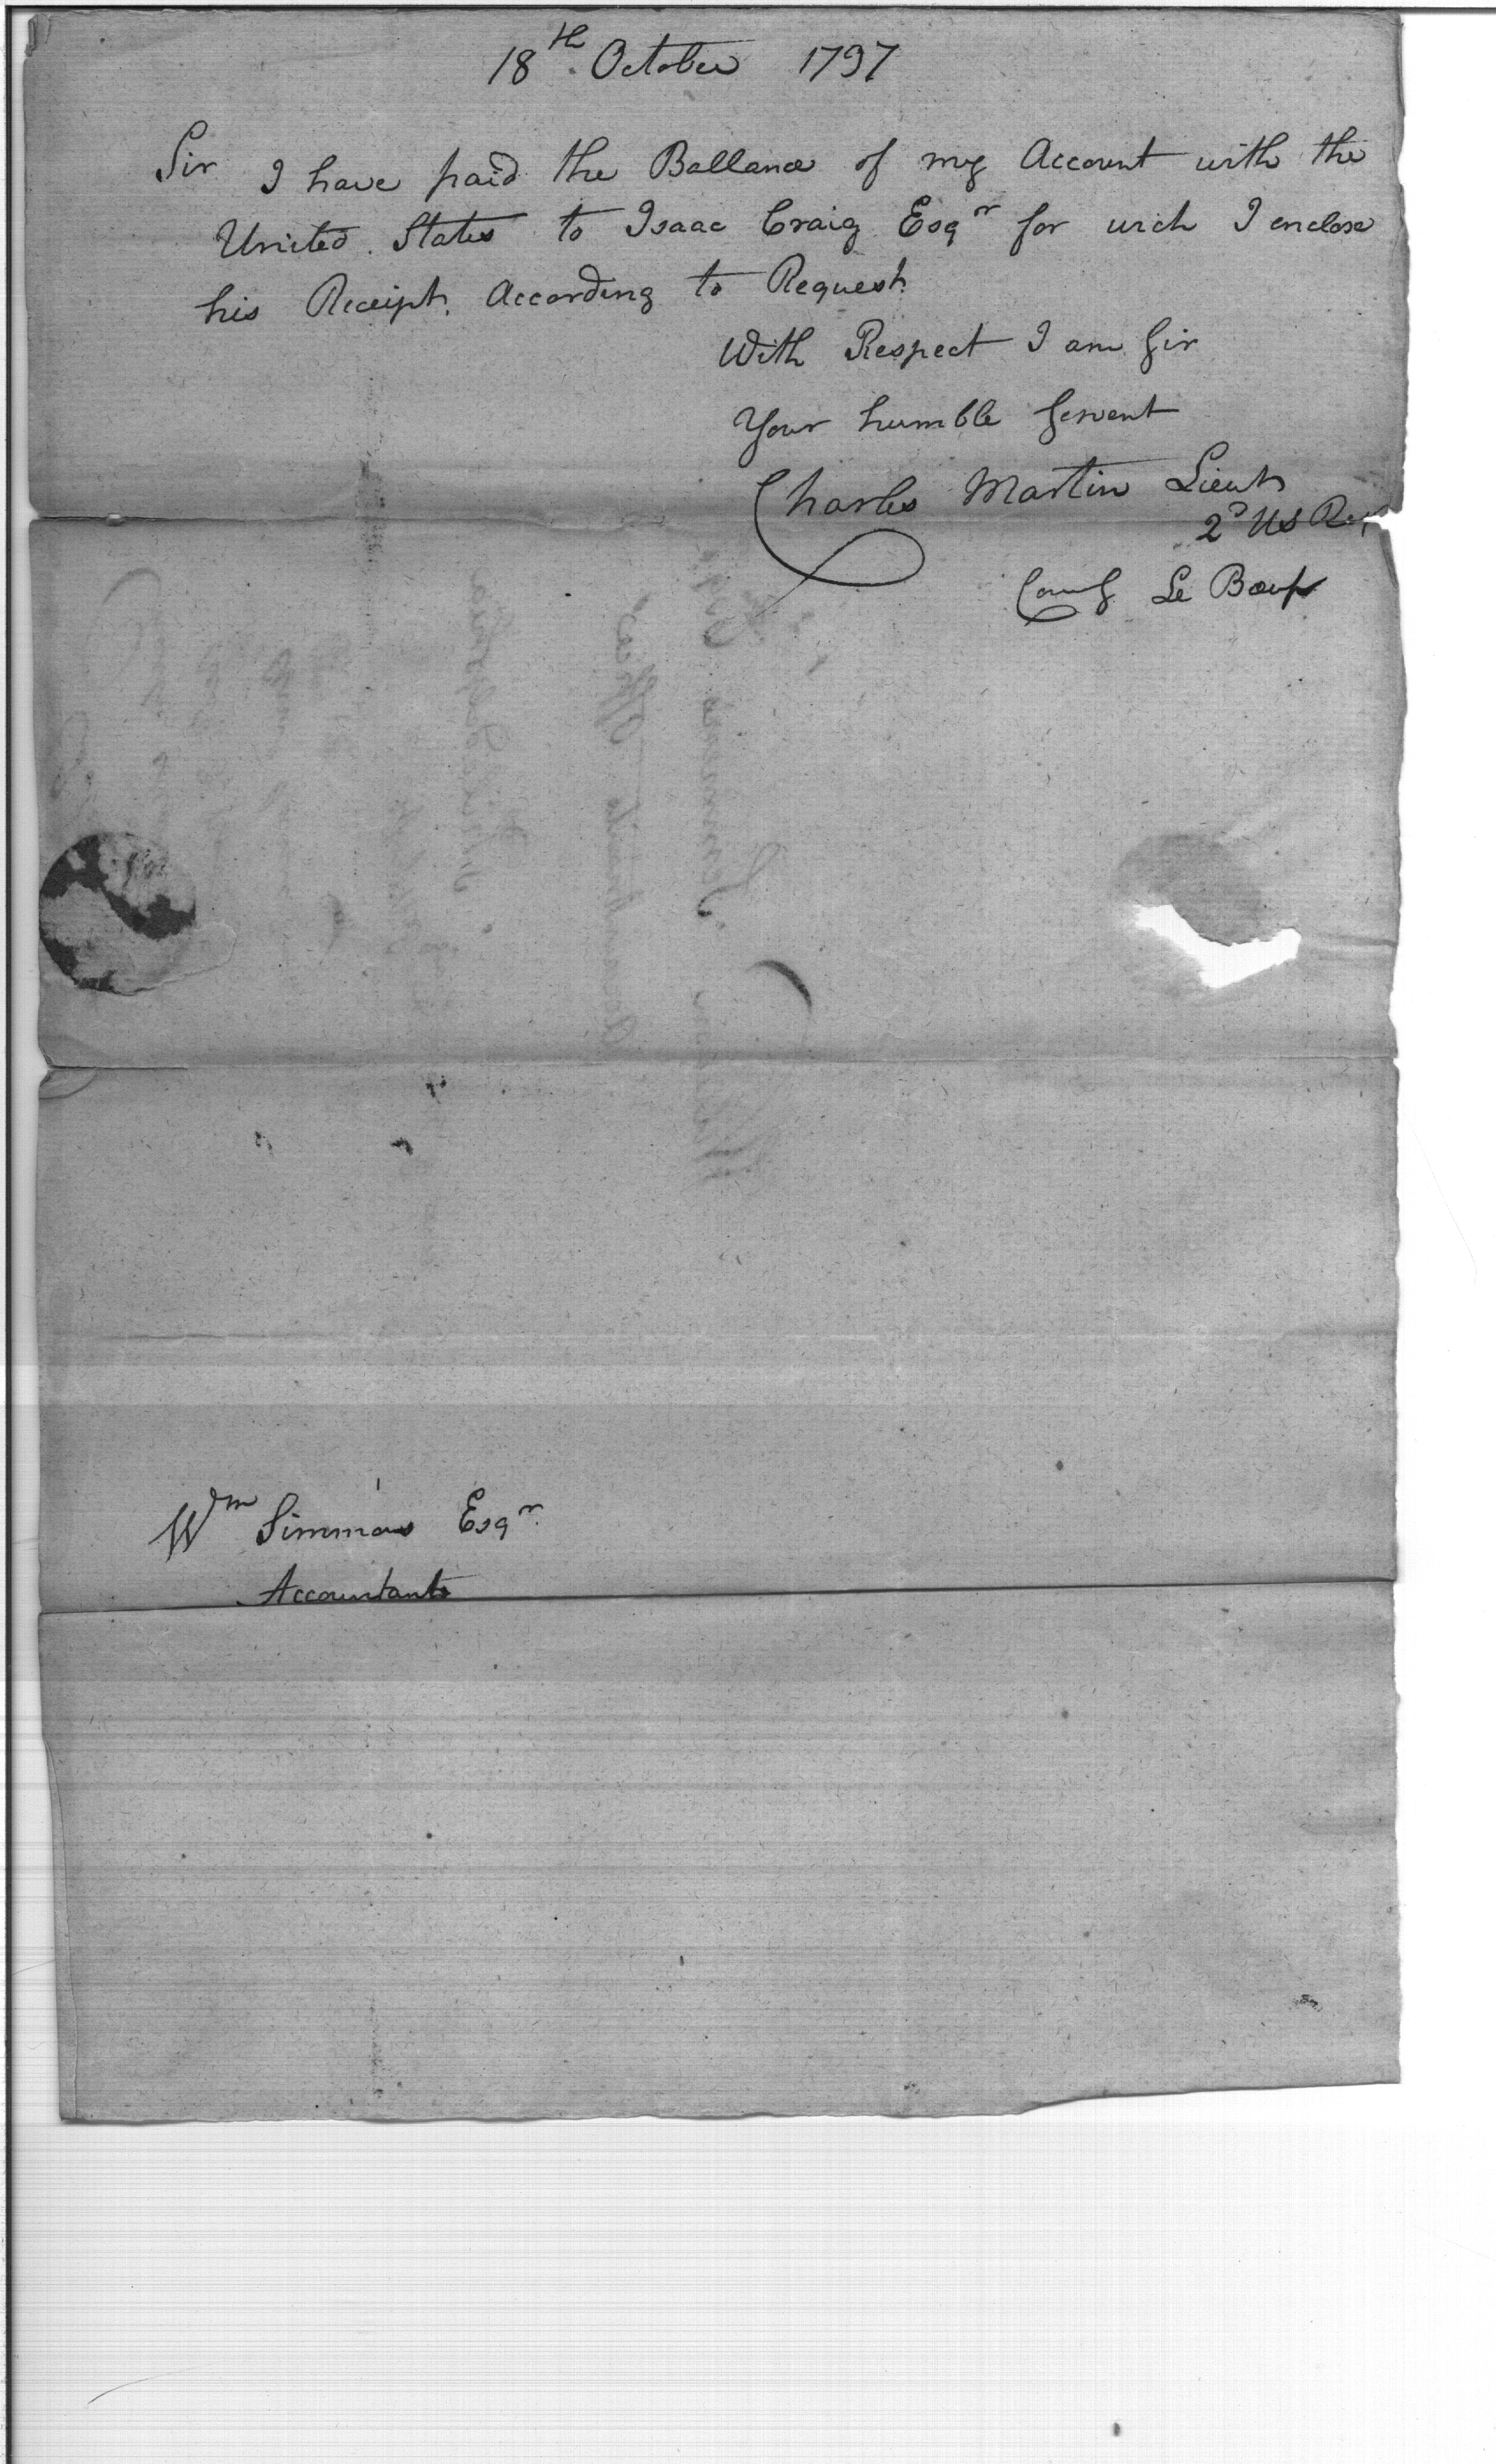 18th October 1797
Sir I have paid the Ballance of my Account with the
United States to Isaac Craig Esqr for wich I enclose
his Receipt. According to Request
With Respect I am Sir
Your humble Servent
Charles Martin Lieut
2d US Reg
Comg Le Boeuf
Wm Simmons Esqr
Accountant